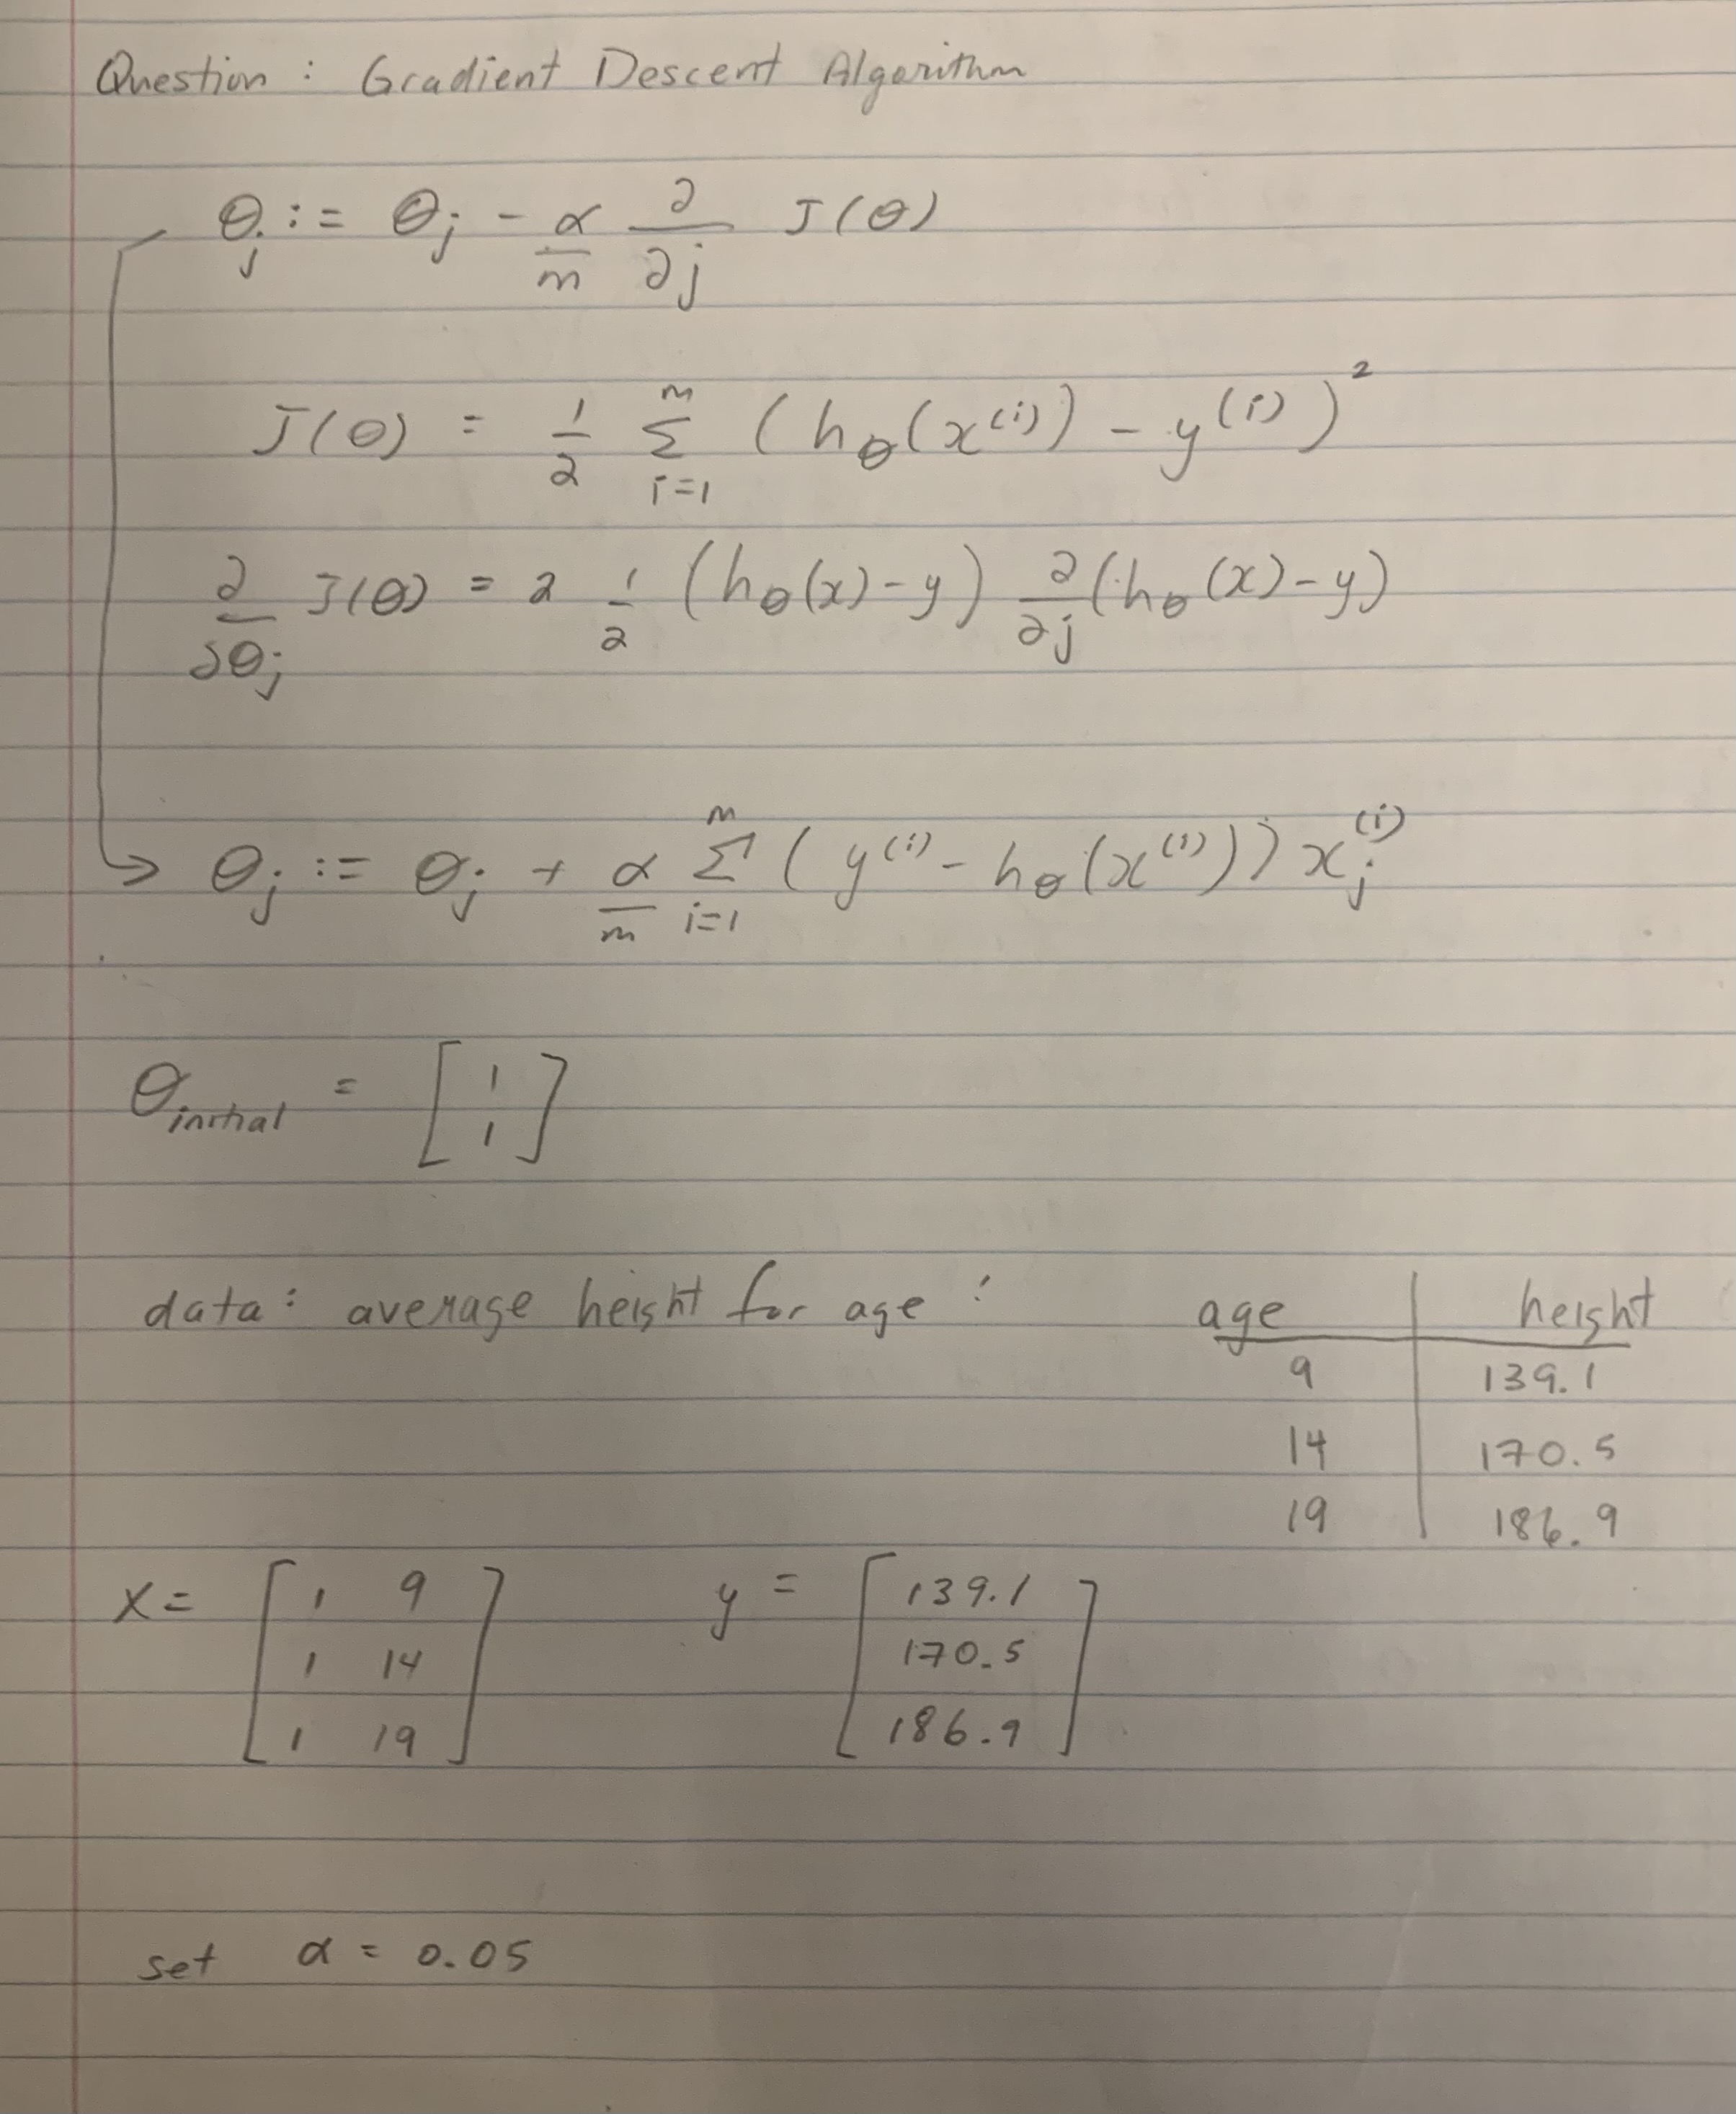 Question : Gradient Descent Algorithm
θj := θj - α/m ∂/∂j J(θ)
J(θ) = 1/2 Σ_{i=1}^{m} (hθ(x^(i)) - y^(i))²
∂/∂θj J(θ) = 2 1/2 (hθ(x) - y) ∂/∂j (hθ(x) - y)
→ θj := θj + α/m Σ_{i=1}^{m} (y^(i) - hθ(x^(i))) xj^(i)
θinitial = [1
1]
data: average height for age :
age | height
9 | 139.1
14 | 170.5
19 | 186.9
X = [1 9
1 14
1 19]
y = [139.1
170.5
186.9]
set α = 0.05